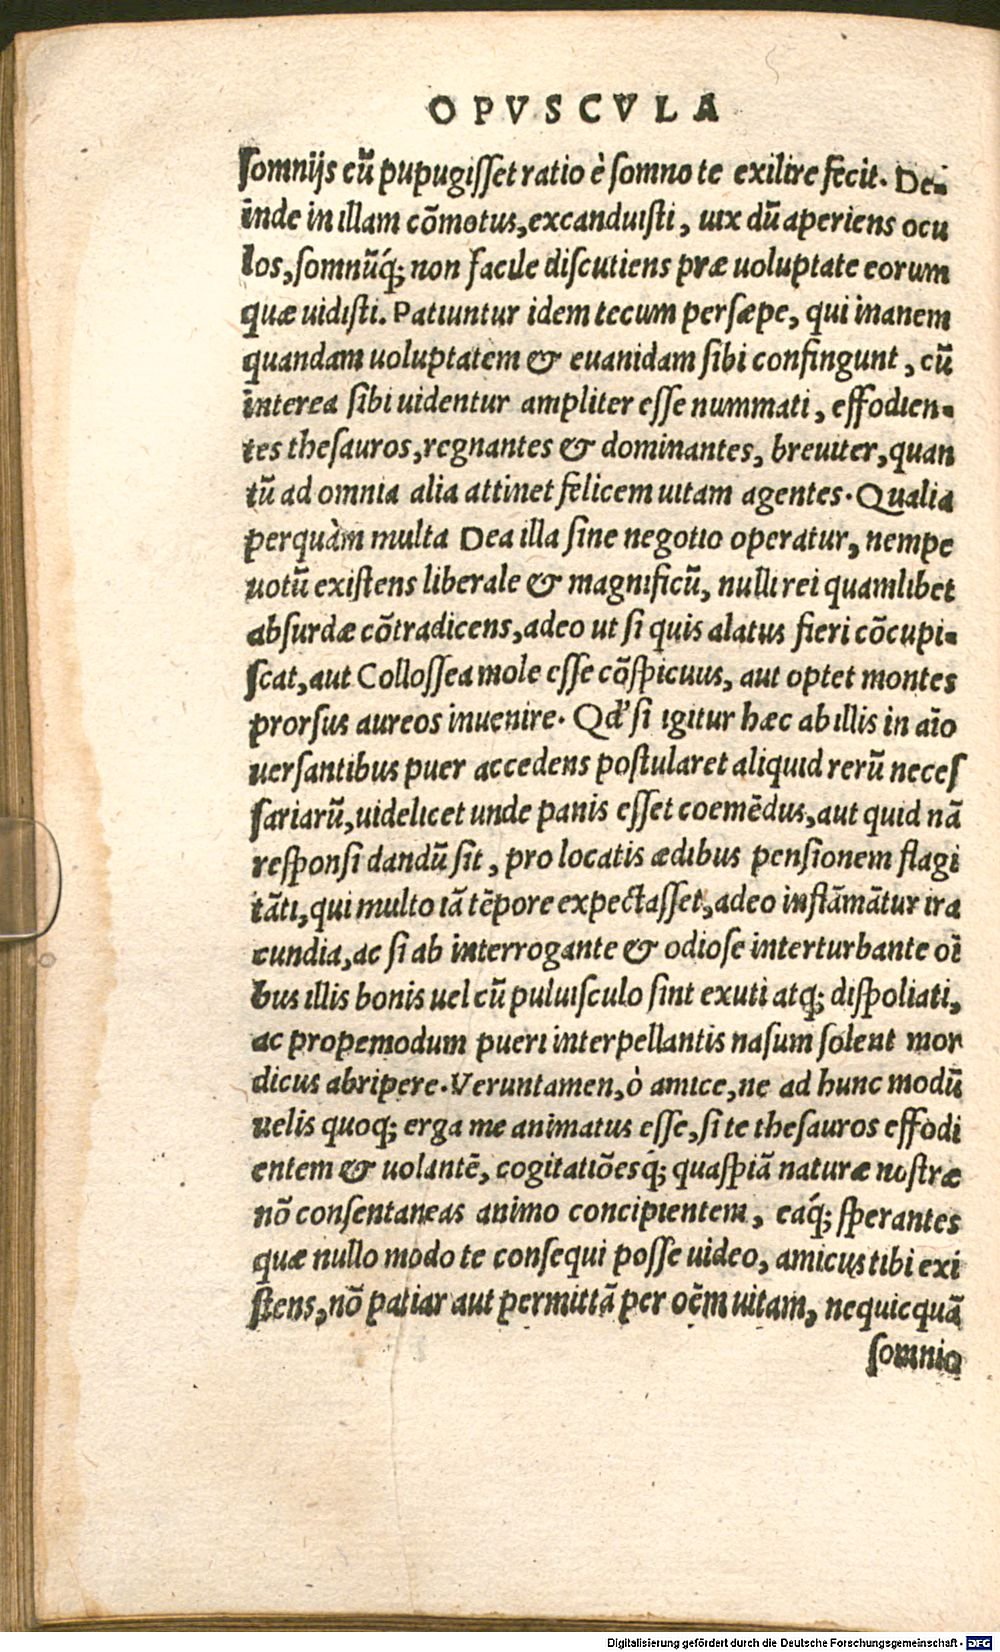 OPVSCVLA
somnijs cū pupugisset ratio è somno te exilire fecit. De-
inde in illam cōmotus, excanduisti, uix dū aperiens ocu
los, somnūq́; non facile discutiens præ uoluptate eorum
quæ uidisti. Patiuntur idem tecum persæpe, qui inanem
quandam uoluptatem & euanidam sibi confingunt, cū
interea sibi uidentur ampliter esse nummati, effodien-
tes thesauros, regnantes & dominantes, breuiter, quan
tū ad omnia alia attinet felicem uitam agentes. Qualia
perquàm multa Dea illa sine negotio operatur, nempe
uotū existens liberale & magnificū, nulli rei quamlibet
absurdæ cōtradicens, adeo ut si quis alatus fieri cōcupi-
scat, aut Collossea mole esse cōspicuus, aut optet montes
prorsus aureos inuenire. Qd' si igitur hæc ab illis in aīo
uersantibus puer accedens postularet aliquid rerū neces
sariarū, uidelicet unde panis esset coemēdus, aut quid nā
responsi dandū sit, pro locatis ædibus pensionem flagi
tāti, qui multo iā tēpore expectasset, adeo inflāmātur ira
cundia, ac si ab interrogante & odiose interturbante oī
bus illis bonis uel cū puluisculo sint exuti atq; dispoliati,
ac propemodum pueri interpellantis nasum solent mor
dicus abripere. Veruntamen, ò amice, ne ad hunc modū
uelis quoq; erga me animatus esse, si te thesauros effodi
entem & uolantē, cogitatiōesq́; quaspiā naturæ nostræ
nō consentaneas animo concipientem, eáq; sperantes
quæ nullo modo te consequi posse uideo, amicus tibi exi
stens, nō patiar aut permittā per oēm uitam, nequicquā
somnia
Digitalisierung gefördert durch die Deutsche Forschungsgemeinschaft - DFG